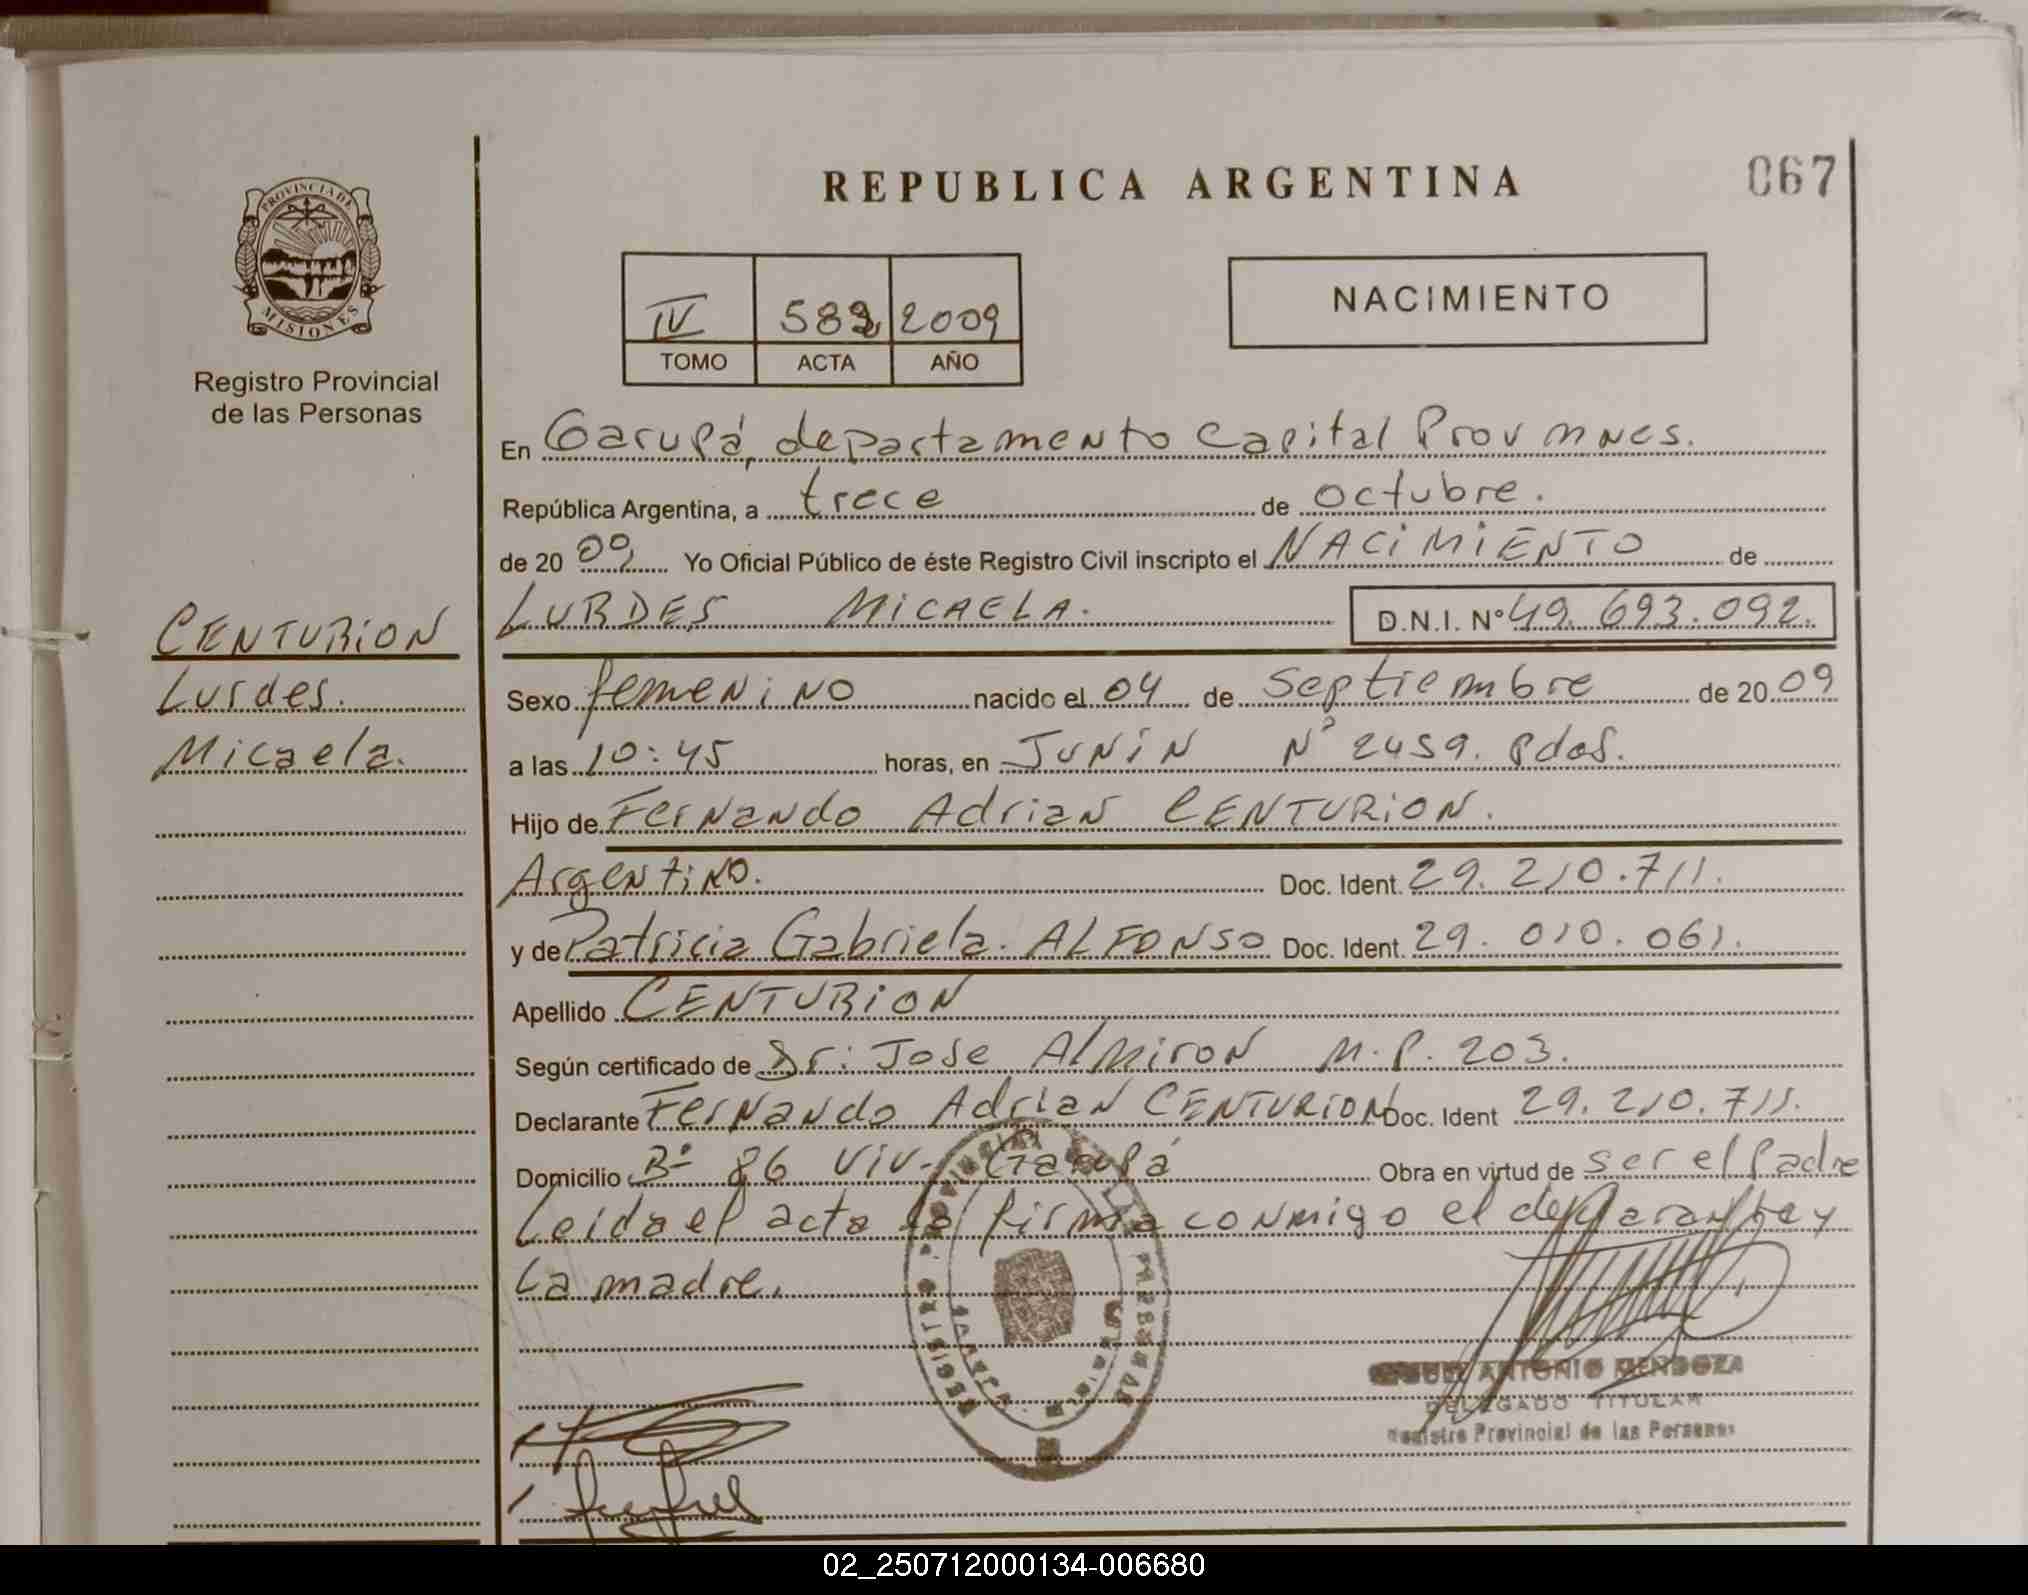 REPUBLICA ARGENTINA
067
PROVINCIA DE
MISIONES
Registro Provincial
de las Personas
IV 2009
TOMO ACTA AÑO
NACIMIENTO
En Garupá, departamento Capital Prov mnes.
República Argentina, a trece de octubre.
de 2009 Yo Oficial Público de éste Registro Civil inscripto el NACIMIENTO de
LURDES MICAELA. D.N.I. Nº 49.693.092.
CENTURION
Lurdes.
Micaela.
Sexo femenino nacido el 04 de septiembre de 2009
a las 10:45 horas, en JUNIN Nº 2459. Pdas.
Hijo de Fernando Adrian CENTURION.
Argentino. Doc. Ident. 29.210.711.
y de Patricia Gabriela. ALFONSO Doc. Ident. 29.010.061.
Apellido CENTURION
Según certificado de Dr: Jose Almiron M.P. 203.
Declarante Fernando Adrian CENTURION Doc. Ident 29.210.711.
Domicilio Bº 86 viv- Garupá Obra en virtud de ser el Padre
Leida el acta la firma conmigo el declarante y
La madre.
REGISTRO PROVINCIAL DE LAS PERSONAS
ANTONIO MENDOZA
DELEGADO TITULAR
Registro Provincial de las Personas
02_250712000134-006680